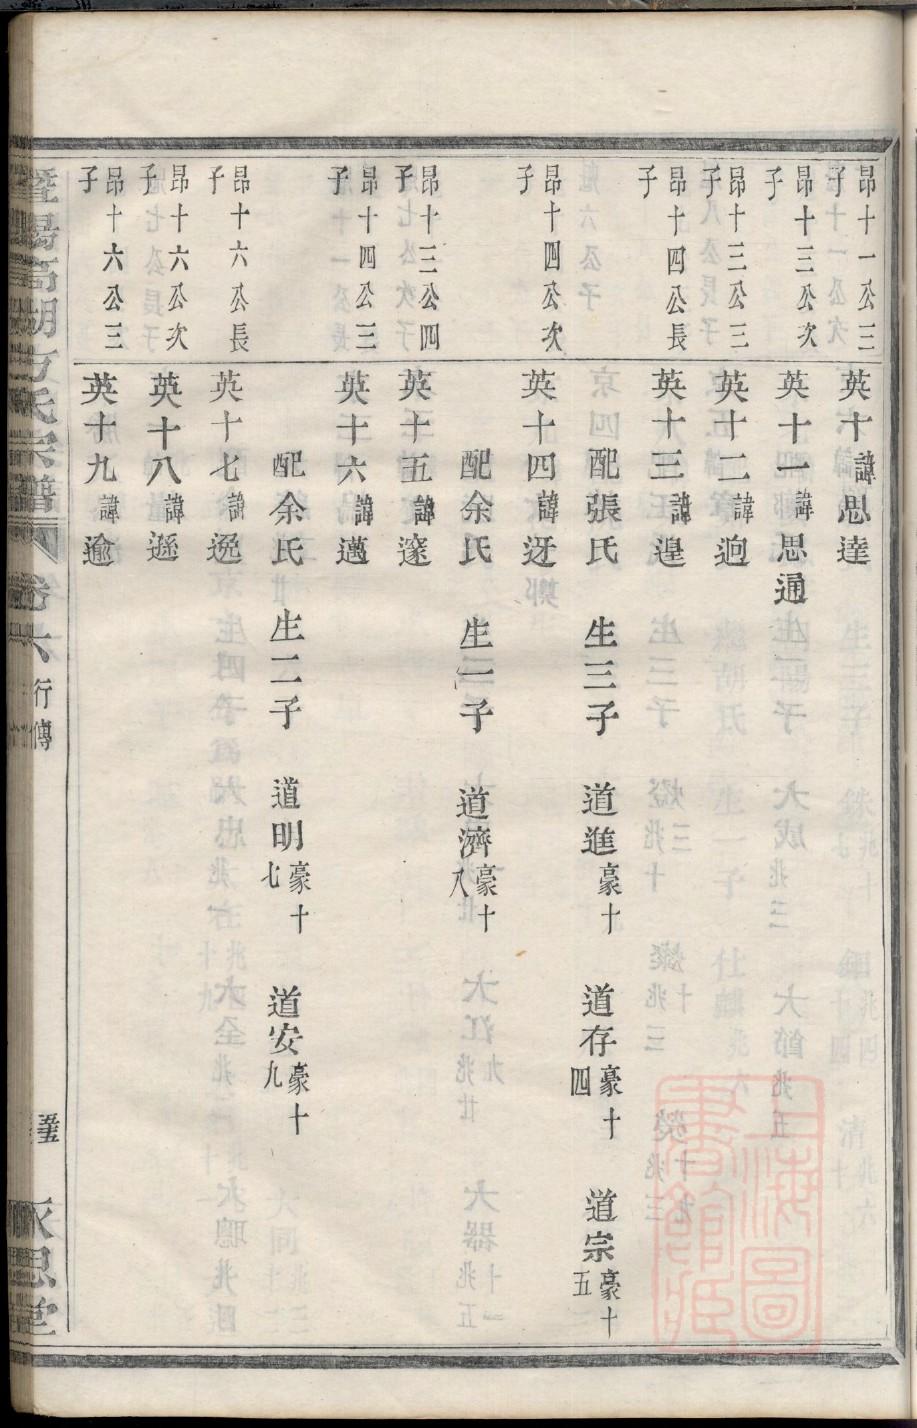 昂十一公三子
英十諱思達
昂十三公次子
英十一諱思通
昂十三公三子
英十二諱逈
昂十四公長子
英十三諱遑
配張氏 生三子 道進豪十 道存豪十四 道宗豪十五
昂十四公次子
英十四諱迓
配余氏 生一子 道濟豪十八
昂十三公四子
英十五諱邃
昂十四公三子
英十六諱邁
配余氏 生二子 道明豪十七 道安豪十九
昂十六公長子
英十七諱逸
昂十六公次子
英十八諱遜
昂十六公三子
英十九諱逾
暨陽高湖方氏宗譜 卷六 行傳 永思堂
上海圖書館藏